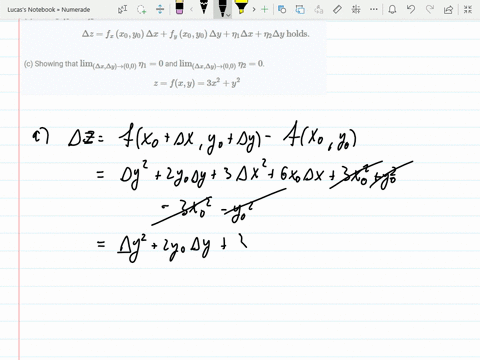 Lucas's Notebook • Numerade
Δz = fₓ (x₀, y₀) Δx + f_y (x₀, y₀) Δy + η₁Δx + η₂Δy holds.
(c) Showing that lim_(Δx,Δy)→(0,0) η₁ = 0 and lim_(Δx,Δy)→(0,0) η₂ = 0.
z = f(x, y) = 3x² + y²
a) Δz = f(x₀ + Δx, y₀ + Δy) - f(x₀, y₀)
= Δy² + 2y₀Δy + 3Δx² + 6x₀Δx + 3x₀² + y₀²
- 3x₀² - y₀²
= Δy² + 2y₀Δy + 3